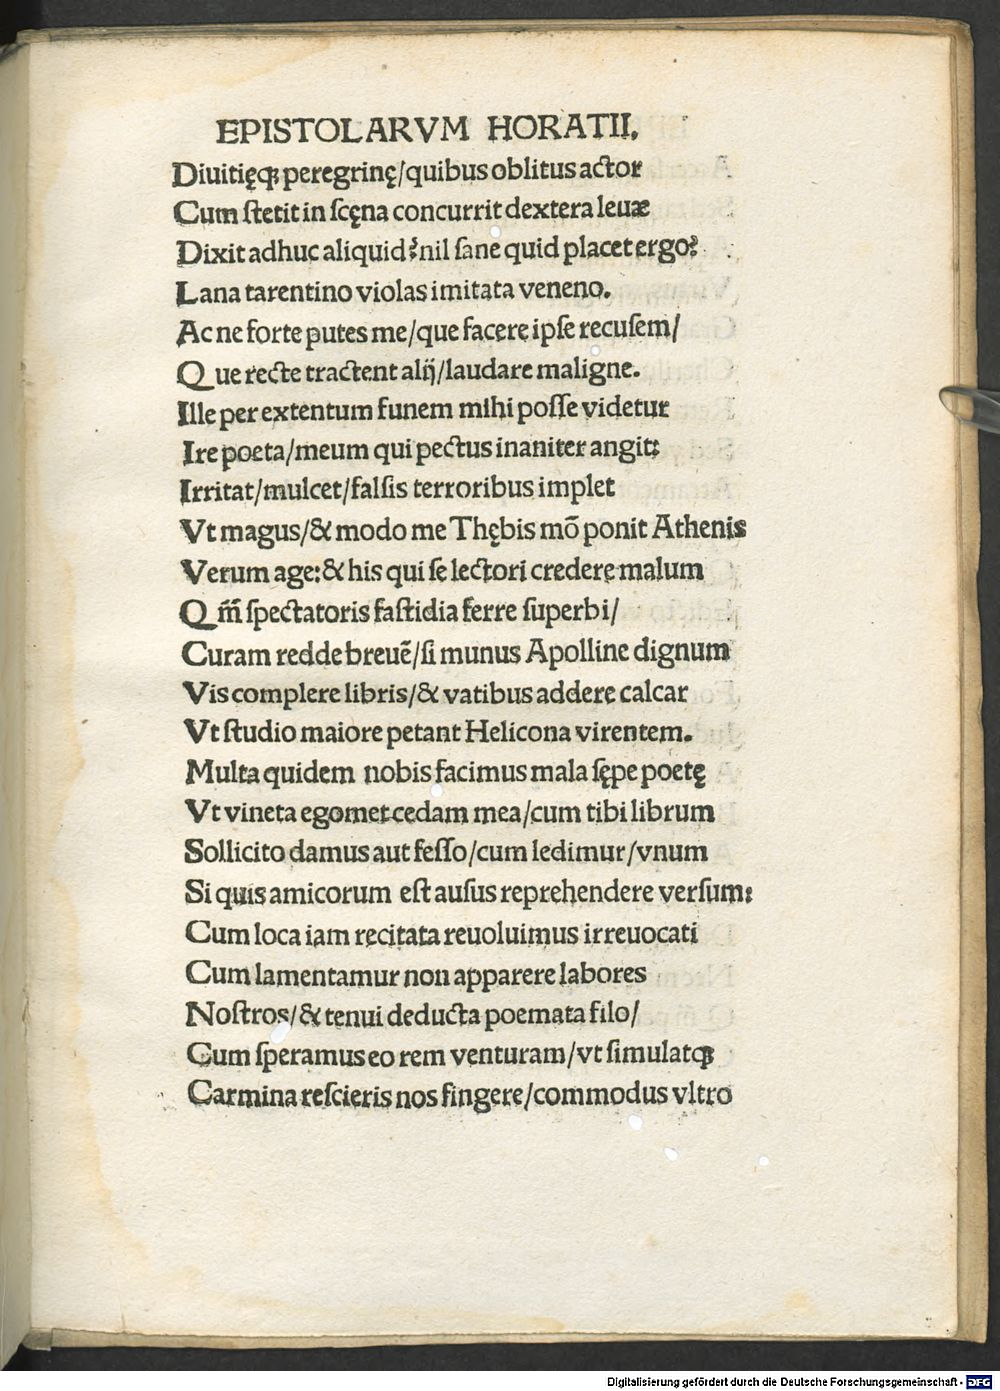 EPISTOLARVM HORATII.
Diuitięqꝫ peregrinę/quibus oblitus actor
Cum ſtetit in ſcęna concurrit dextera leuæ
Dixit adhuc aliquid? nil ſane quid placet ergo?
Lana tarentino violas imitata veneno.
Ac ne forte putes me/que facere ipſe recuſem/
Que recte tractent alij/laudare maligne.
Ille per extentum funem mihi poſſe videtur
Ire poeta/meum qui pectus inaniter angit:
Irritat/mulcet/falſis terroribus implet
Vt magus/& modo me Thębis mō ponit Athenis
Verum age:& his qui ſe lectori credere malum
Qm̄ ſpectatoris faſtidia ferre ſuperbi/
Curam redde breuē/ſi munus Apolline dignum
Vis complere libris/& vatibus addere calcar
Vt ſtudio maiore petant Helicona virentem.
Multa quidem nobis facimus mala ſępe poetę
Vt vineta egomet cedam mea/cum tibi librum
Sollicito damus aut feſſo/cum ledimur/vnum
Si quis amicorum eſt auſus reprehendere verſum:
Cum loca iam recitata reuoluimus irreuocati
Cum lamentamur non apparere labores
Noſtros/& tenui deducta poemata filo/
Cum ſperamus eo rem venturam/vt ſimulatqꝫ
Carmina reſcieris nos fingere/commodus vltro
Digitalisierung gefördert durch die Deutsche Forschungsgemeinschaft - DFG